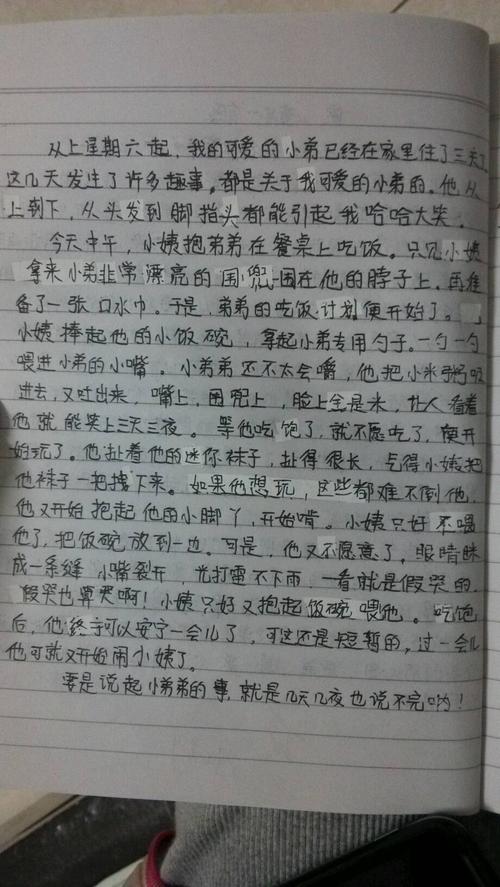 从上星期六起，我的可爱的小弟已经在家里住了三天了
这几天发生了许多趣事。都是关于我可爱的小弟的。他从
上到下，从头发到脚指头都能引起我哈哈大笑。
今天中午，小姨抱弟弟在餐桌上吃饭。只见小姨
拿来小弟非常漂亮的围兜，围在他的脖子上。再准
备了一张口水巾。于是，弟弟的吃饭计划便开始了。
小姨捧起他的小饭碗，拿起小弟专用勺子。一勺一勺
喂进小弟的小嘴。小弟弟还不太会嚼，他把小米粥吸
进去，又吐出来，嘴上，围兜上，脸上全是米，让人看着
他就能笑上三天三夜。等他吃饱了，就不愿吃了，便开
始玩了。他扯着他的迷你袜子，扯得很长，气得小姨把
他袜子一把拽下来。如果他想玩，这些都难不倒他，
他又开始抱起他的小脚丫，开始啃。小姨只好不喂
他了，把饭碗放到一边。可是，他又不愿意了。眼睛眯
成一条缝，小嘴裂开，光打雷不下雨，一看就是假哭的，
假哭也算哭啊！小姨只好又抱起饭碗喂他。吃饱
后，他终于可以安宁一会儿了，可这还是短暂的，过一会儿
他可就又开始闹小姨了。
要是说起小弟弟的事，就是几天几夜也说不完哟！